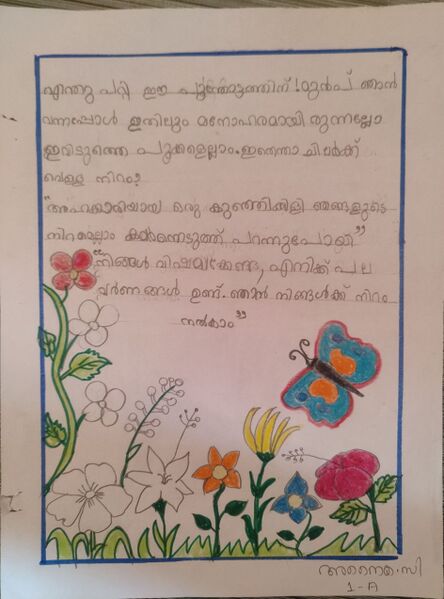 എന്തു പറ്റി ഈ പൂന്തോട്ടത്തിന്! മുൻപ് ഞാൻ
വന്നപ്പോൾ ഇതിലും മനോഹരമായിരുന്നല്ലോ
ഇവിടുത്തെ പൂക്കളെല്ലാം. ഇതെന്താ ചിലർക്ക്
വെള്ള നിറം?
"അഹങ്കാരിയായ ഒരു കുഞ്ഞിക്കിളി ഞങ്ങളുടെ
നിറമെല്ലാം കവർന്നെടുത്ത് പറന്നുപോയി"
"നിങ്ങൾ വിഷമിക്കേണ്ട, എനിക്ക് പല
വർണങ്ങൾ ഉണ്ട്. ഞാൻ നിങ്ങൾക്ക് നിറം
നൽകാം"
1-A